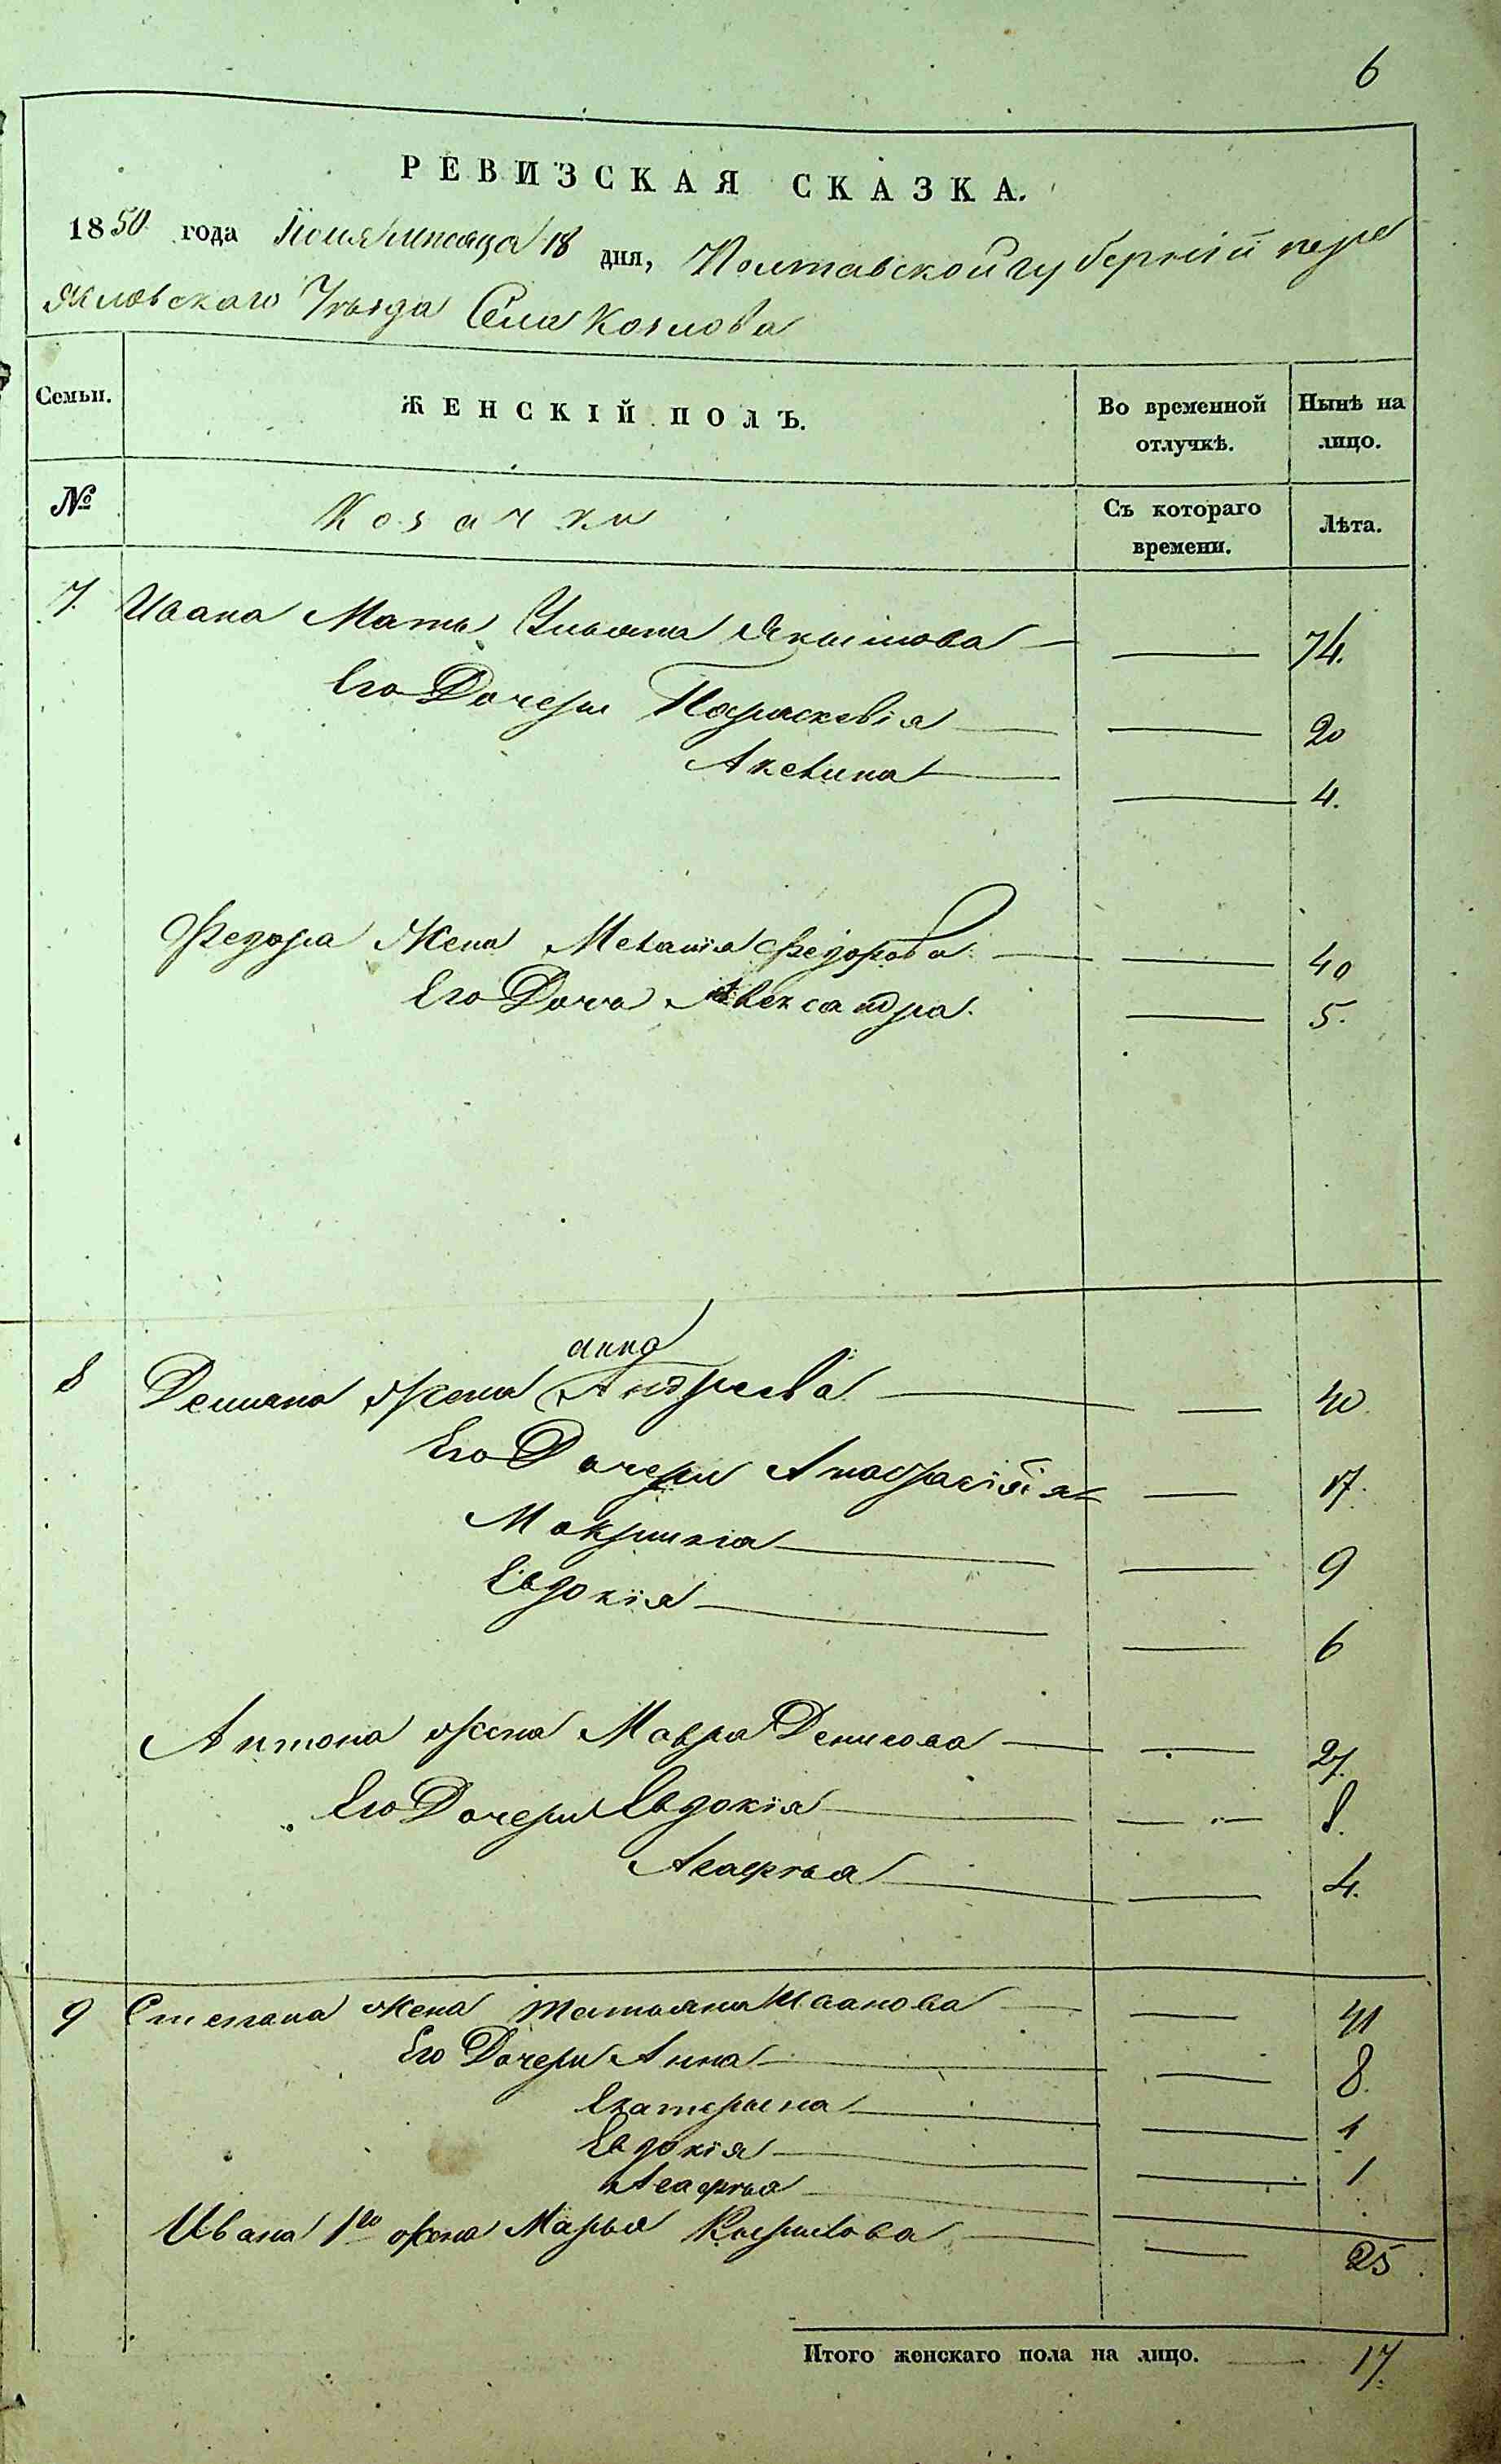 6
РЕВИЗСКАЯ СКАЗКА.
1850 года Іюня мѣсяца 18 дня, Полтавской губерніи пере
яславскаго Уѣзда Села Козлова
Семьи.
ЖЕНСКІЙ ПОЛЪ.
Во временной отлучкѣ.
Нынѣ на лицо.
№
Козачки
Съ котораго времени.
Лѣта.
7. Ивана Мать Ульяна Якимова — — 74.
Его Дочери Параскевія — — 20
Акелина — — 4.
Федора Жена Меланія Федорова — — 40
Его Дочь Александра. — 5.
анна
8 Демьяна жена Андреева — — 40.
Его Дочери Анастасія — 17.
Макрина — — 9
Евдокія — — 6
Антона жена Мавра Денисова — — 27.
Его Дочери Евдокія — — 8.
Агафья — — 4.
9 Степана жена Татьяна Иванова — — 41
Его Дочери Анна — — 8.
Екатерина — — 1
Евдокія — — 1
Агафья — —
Ивана 1го жена Марья Кирилова — — 25.
Итого женскаго пола на лицо. — 17.